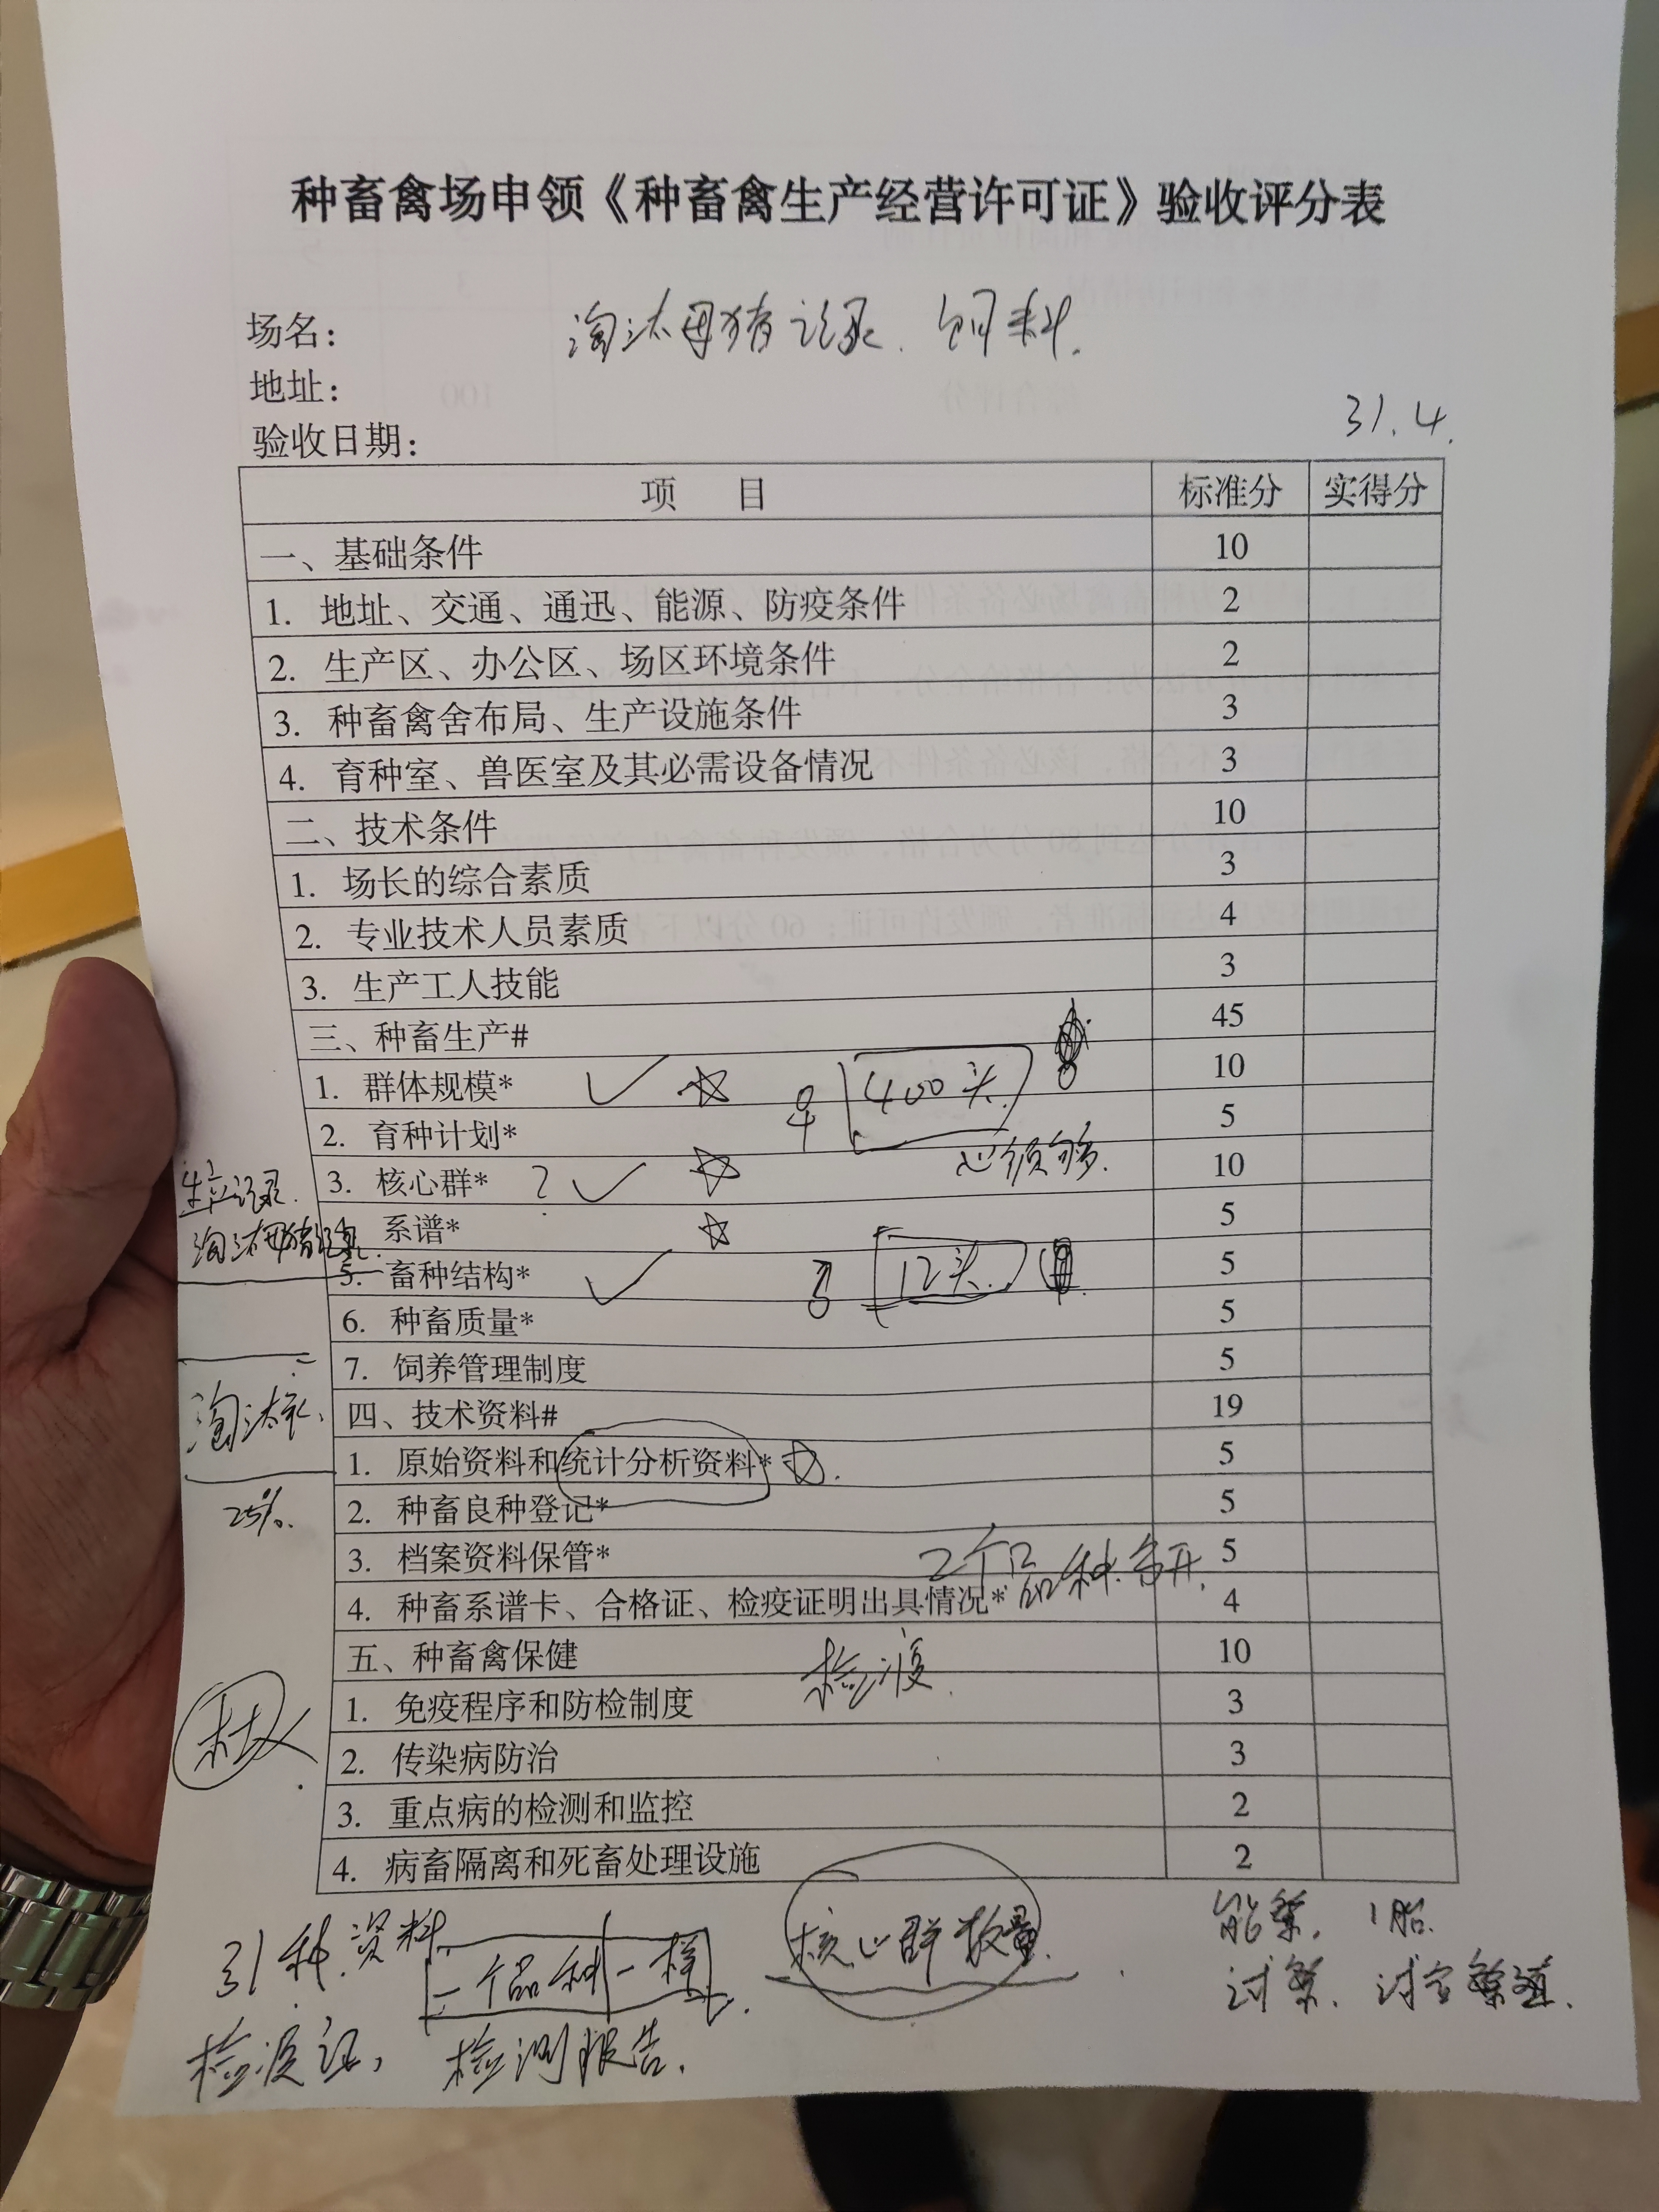 种畜禽场申领《种畜禽生产经营许可证》验收评分表
场名：
淘汰母猪记录. 饲料.
地址：
31.4.
验收日期：
项 目 标准分 实得分
一、基础条件 10
1. 地址、交通、通迅、能源、防疫条件 2
2. 生产区、办公区、场区环境条件 2
3. 种畜禽舍布局、生产设施条件 3
4. 育种室、兽医室及其必需设备情况 3
二、技术条件 10
1. 场长的综合素质 3
2. 专业技术人员素质 4
3. 生产工人技能 3
三、种畜生产# 45
1. 群体规模* ✓ ☆ ♀ 400头. 10
2. 育种计划* 5
必须够.
3. 核心群* ? ✓ ☆ 10
生产记录.
系谱* ☆ 5
淘汰母猪记录.
5. 畜种结构* ✓ ♂ 12头. 5
6. 种畜质量* 5
7. 饲养管理制度 5
四、技术资料# 19
淘汰
1. 原始资料和统计分析资料* ☆. 5
25%.
2. 种畜良种登记* 5
3. 档案资料保管* 5
2个品种分开.
4. 种畜系谱卡、合格证、检疫证明出具情况* 4
五、种畜禽保健 10
检疫.
1. 免疫程序和防检制度 3
2. 传染病防治 3
3. 重点病的检测和监控 2
4. 病畜隔离和死畜处理设施 2
31种.资料.
一个品种一样
核心群数量.
能繁. 1胎.
检疫证, 检测报告.